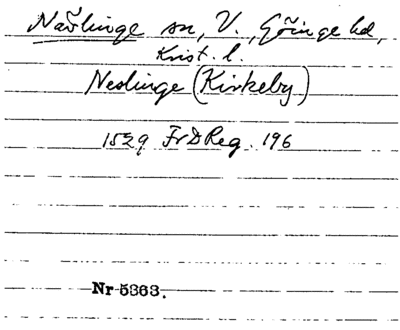 Nävlinge sn, V., Göinge hd,
Krist. l.
Neslinge (Kirkeby)
1529 FrDReg. 196
Nr 5363.